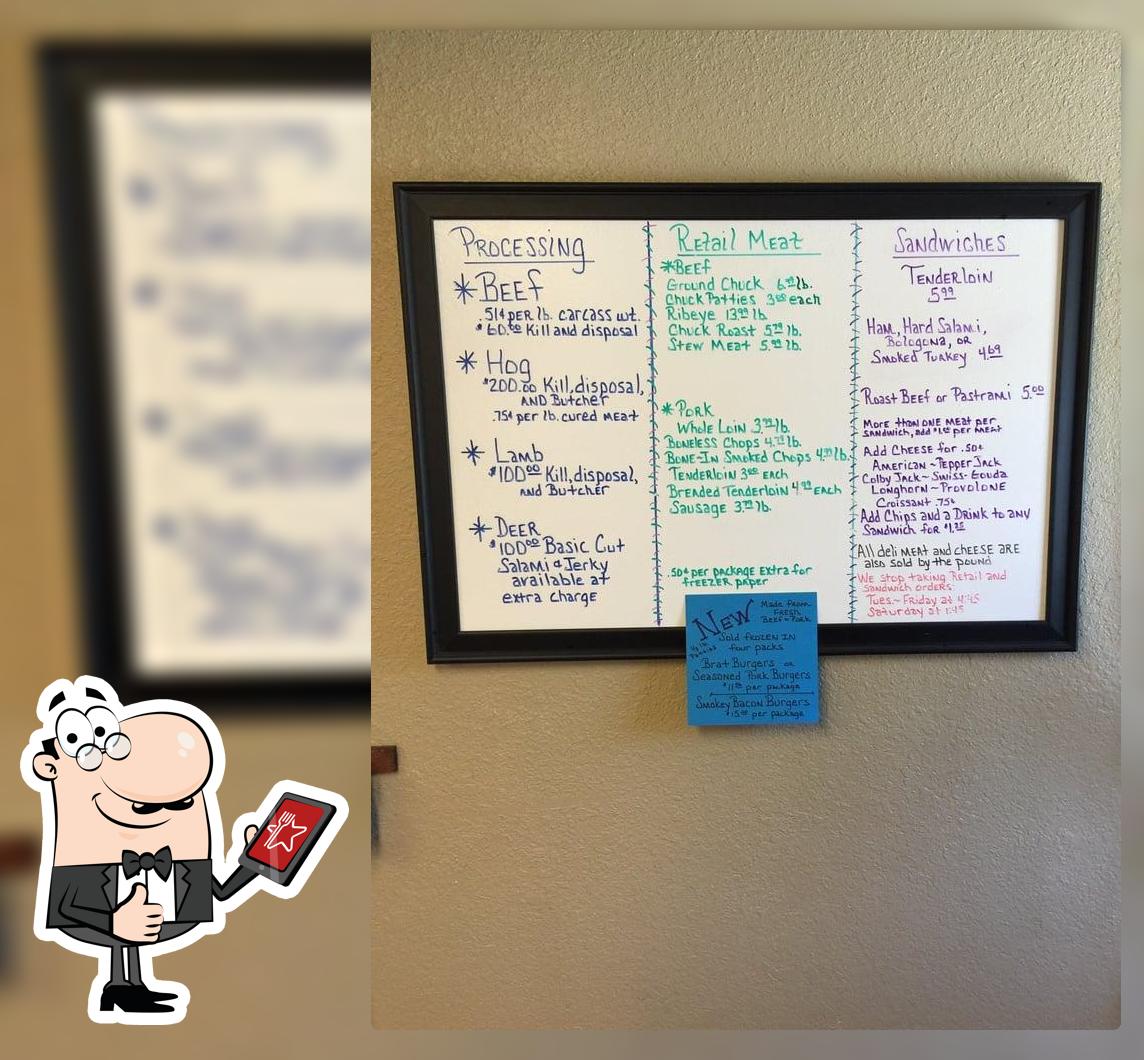 Processing
*Beef
.51¢ per lb. carcass wt.
$60.00 Kill and disposal
* Hog
$200.00 Kill, disposal,
and Butcher
.75¢ per lb. cured meat
* Lamb
$100.00 Kill, disposal,
and Butcher
* Deer
$100.00 Basic Cut
Salami & Jerky
available at
extra charge
Retail Meat
*Beef
Ground Chuck 6.99 lb.
Chuck Patties 3.00 each
Ribeye 13.99 lb.
Chuck Roast 5.79 lb.
Stew Meat 5.99 lb.
* Pork
Whole Loin 3.99 lb.
Boneless Chops 4.79 lb.
Bone-In Smoked Chops 4.99 lb.
Tenderloin 3.00 each
Breaded Tenderloin 4.99 each
Sausage 3.79 lb.
.50¢ per package extra for
freezer paper
Sandwiches
Tenderloin
5.99
Ham, Hard Salami,
Bologona, or
Smoked Turkey 4.69
Roast Beef or Pastrami 5.00
More than one meat per
sandwich, add per meat
Add Cheese for .50¢
American ~ Pepper Jack
Colby Jack ~ Swiss - Gouda
Longhorn ~ Provolone
Croissant .75¢
Add Chips and a Drink to any
Sandwich for $1.25
All deli meat and cheese are
also sold by the pound
We stop taking Retail and
sandwich orders
Tues. ~ Friday at 4:45
Saturday at 1:45
New
Made from
Fresh
Beef & Pork
Sold frozen in
four packs
Brat Burgers or
Seasoned Pork Burgers
per package
Smokey Bacon Burgers
per package